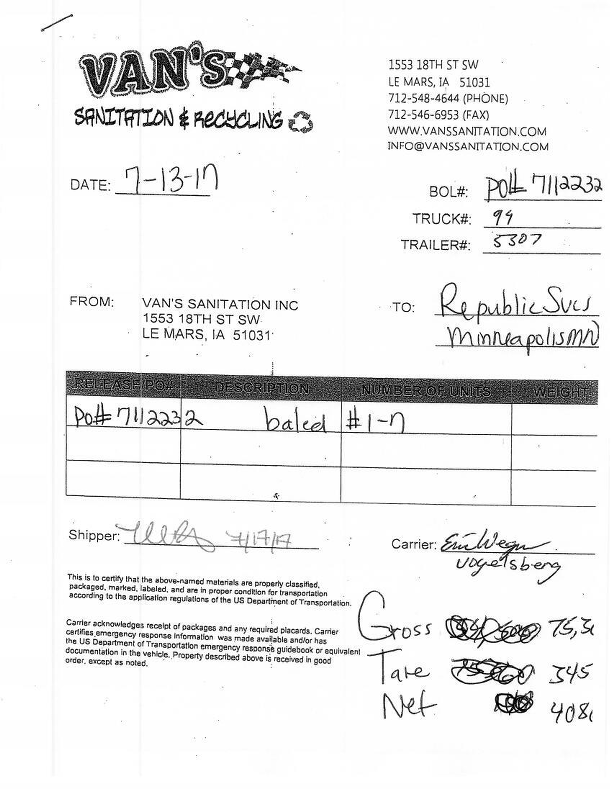 VAN'S
SANITATION & RECYCLING
1553 18TH ST SW
LE MARS, IA 51031
712-548-4644 (PHONE)
712-546-6953 (FAX)
WWW.VANSSANITATION.COM
INFO@VANSSANITATION.COM
DATE: 7-13-17
BOL#: PO# 7112232
TRUCK#: 99
TRAILER#: 5307
FROM: VAN'S SANITATION INC
1553 18TH ST SW
LE MARS, IA 51031
TO: Republic Svcs
Minneapolis MN
RELEASE/PO# DESCRIPTION NUMBER OF UNITS WEIGHT
PO# 7112232 baled #1-7
Shipper: 7/17/17
Carrier: Eric Wegn
Vogelsberg
This is to certify that the above-named materials are properly classified,
packaged, marked, labeled, and are in proper condition for transportation
according to the application regulations of the US Department of Transportation.
Carrier acknowledges receipt of packages and any required placards. Carrier
certifies emergency response information was made available and/or has
the US Department of Transportation emergency response guidebook or equivalent
documentation in the vehicle. Property described above is received in good
order, except as noted.
Gross 75,3
Tare 345
Net 408